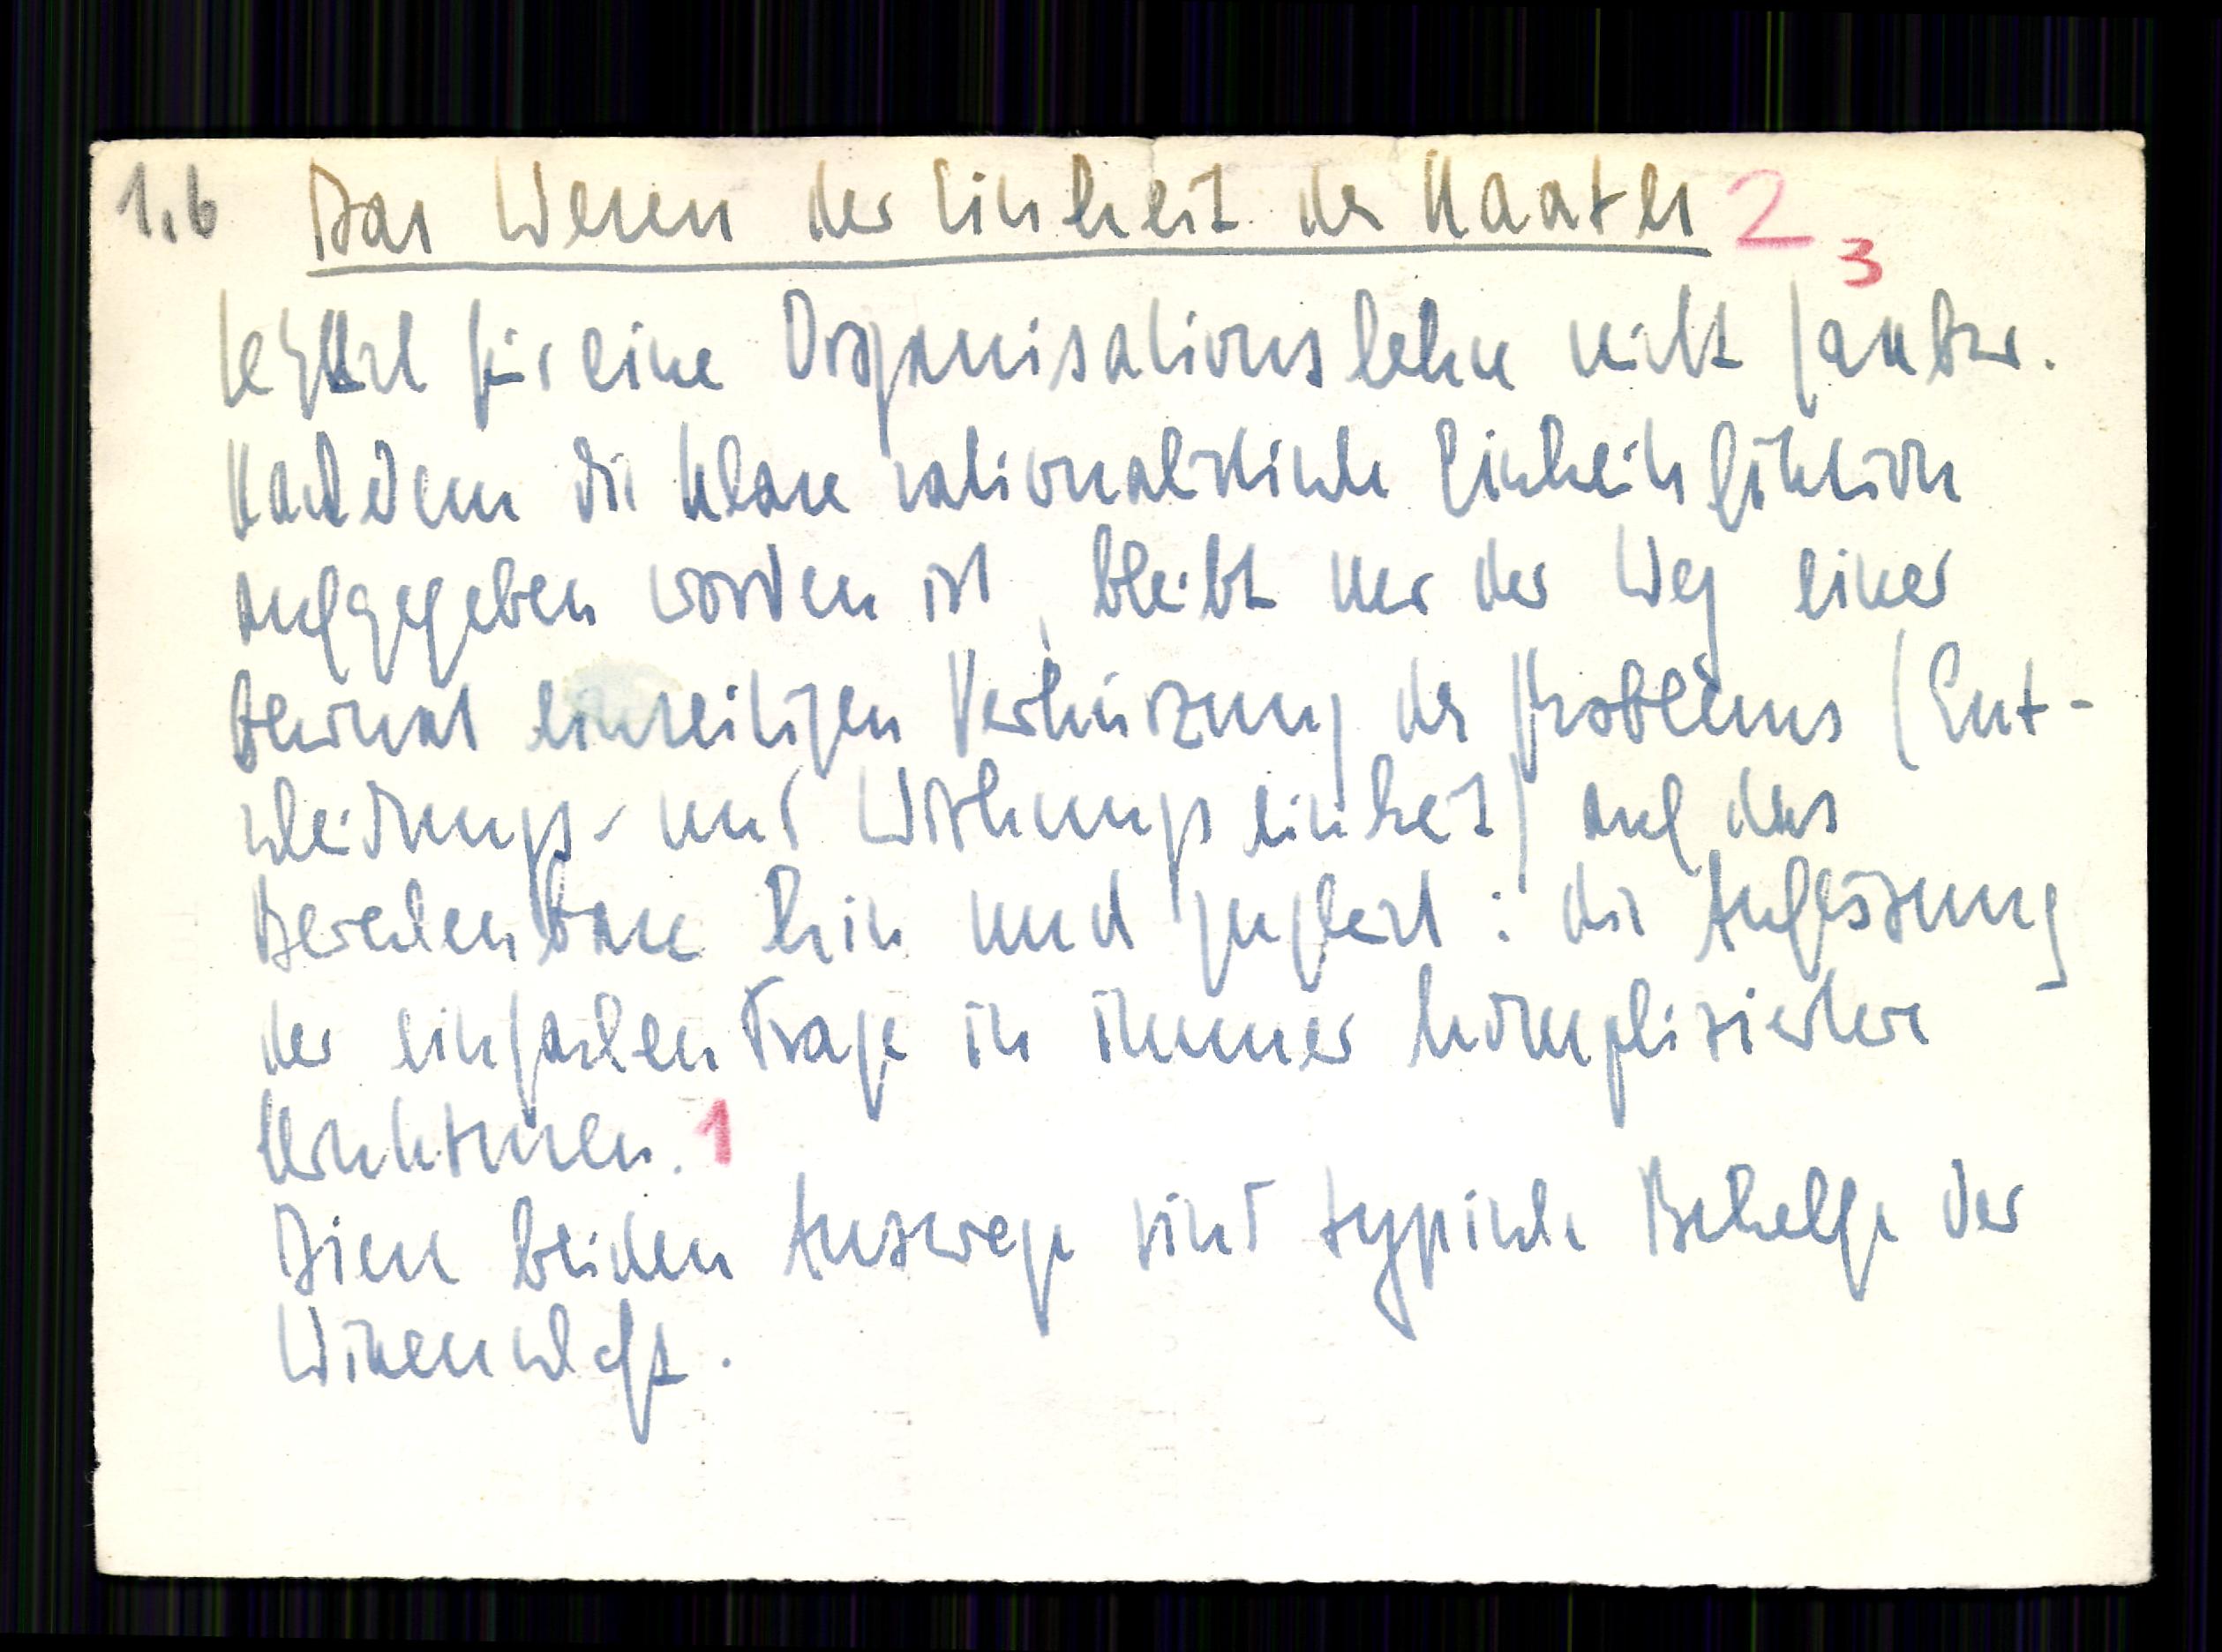 1,6 Das Wesen der Einheit des Staates 2 3
letztlich für eine Organisationslehre nicht fassbar.
Nachdem die klare rationalistische Einheitsfiktion
aufgegeben worden ist, bleibt nur der Weg einer
bewusst einseitigen Verkürzung des Problems (Ent-
scheidungs- und Wirkungseinheit) auf das
Berechenbare hin und zugleich: die Auflösung
der einfachen Frage in immer kompliziertere
Strukturen. 1
Diese beiden Auswege sind typische Behelfe der
Wissenschaft.